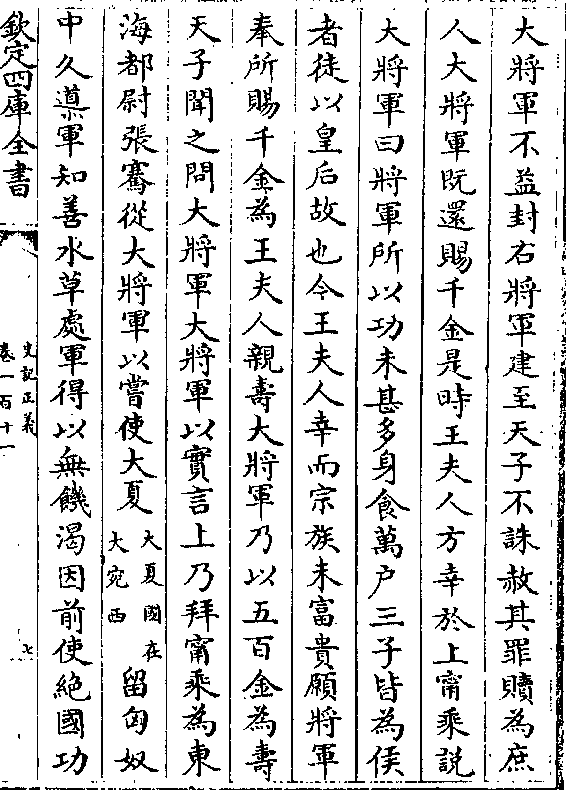 大將軍不益封右將軍建至天子不誅赦其罪贖為庶
人大將軍既還賜千金是時王夫人方幸於上甯乘説
大將軍曰將軍所以功未甚多身食萬户三子皆為侯
者徒以皇后故也今王夫人幸而宗族未富貴願將軍
奉所賜千金為王夫人親壽大將軍乃以五百金為壽
天子聞之問大將軍大將軍以實言上乃拜甯乘為東
海都尉張騫從大將軍以嘗使大夏大夏國在大宛西留匈奴
中久導軍知善水草處軍得以無饑渴因前使絶國功
欽定四庫全書
史記正義
卷一百十一
七